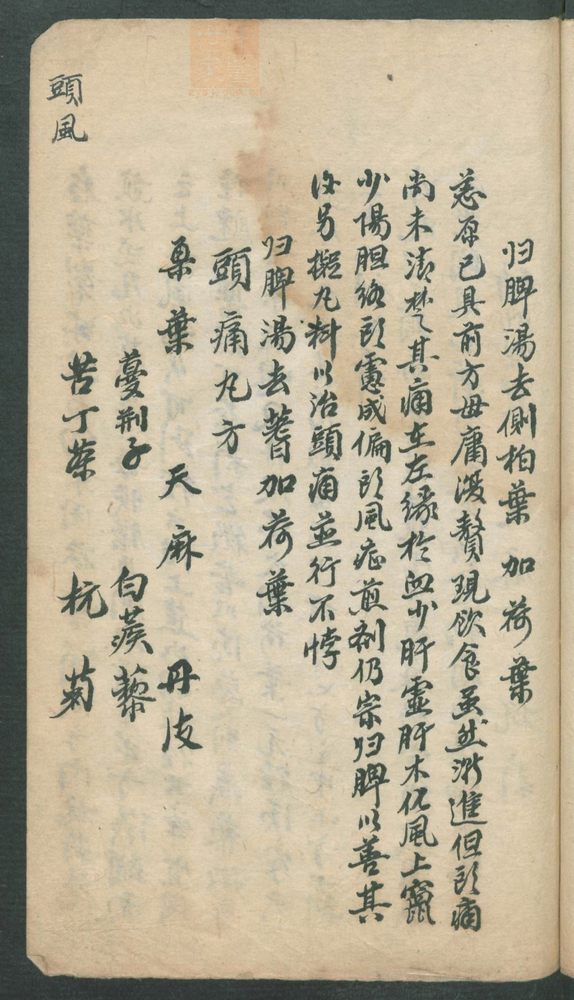 归脾湯去側柏葉 加荷葉
恙原已具前方毋庸復贅現飲食虽然渐進但頭痛
尚未清楚其痛在左缘於血少肝虚肝木化風上竄
少陽胆络頭慮成偏頭風症煎剂仍宗归脾以善其
後另擬丸料以治頭痛並行不悖
归脾湯去耆加荷葉
頭痛丸方
桑葉 天麻 丹皮
蔓荆子 白蒺藜
苦丁茶 杭菊
頭風